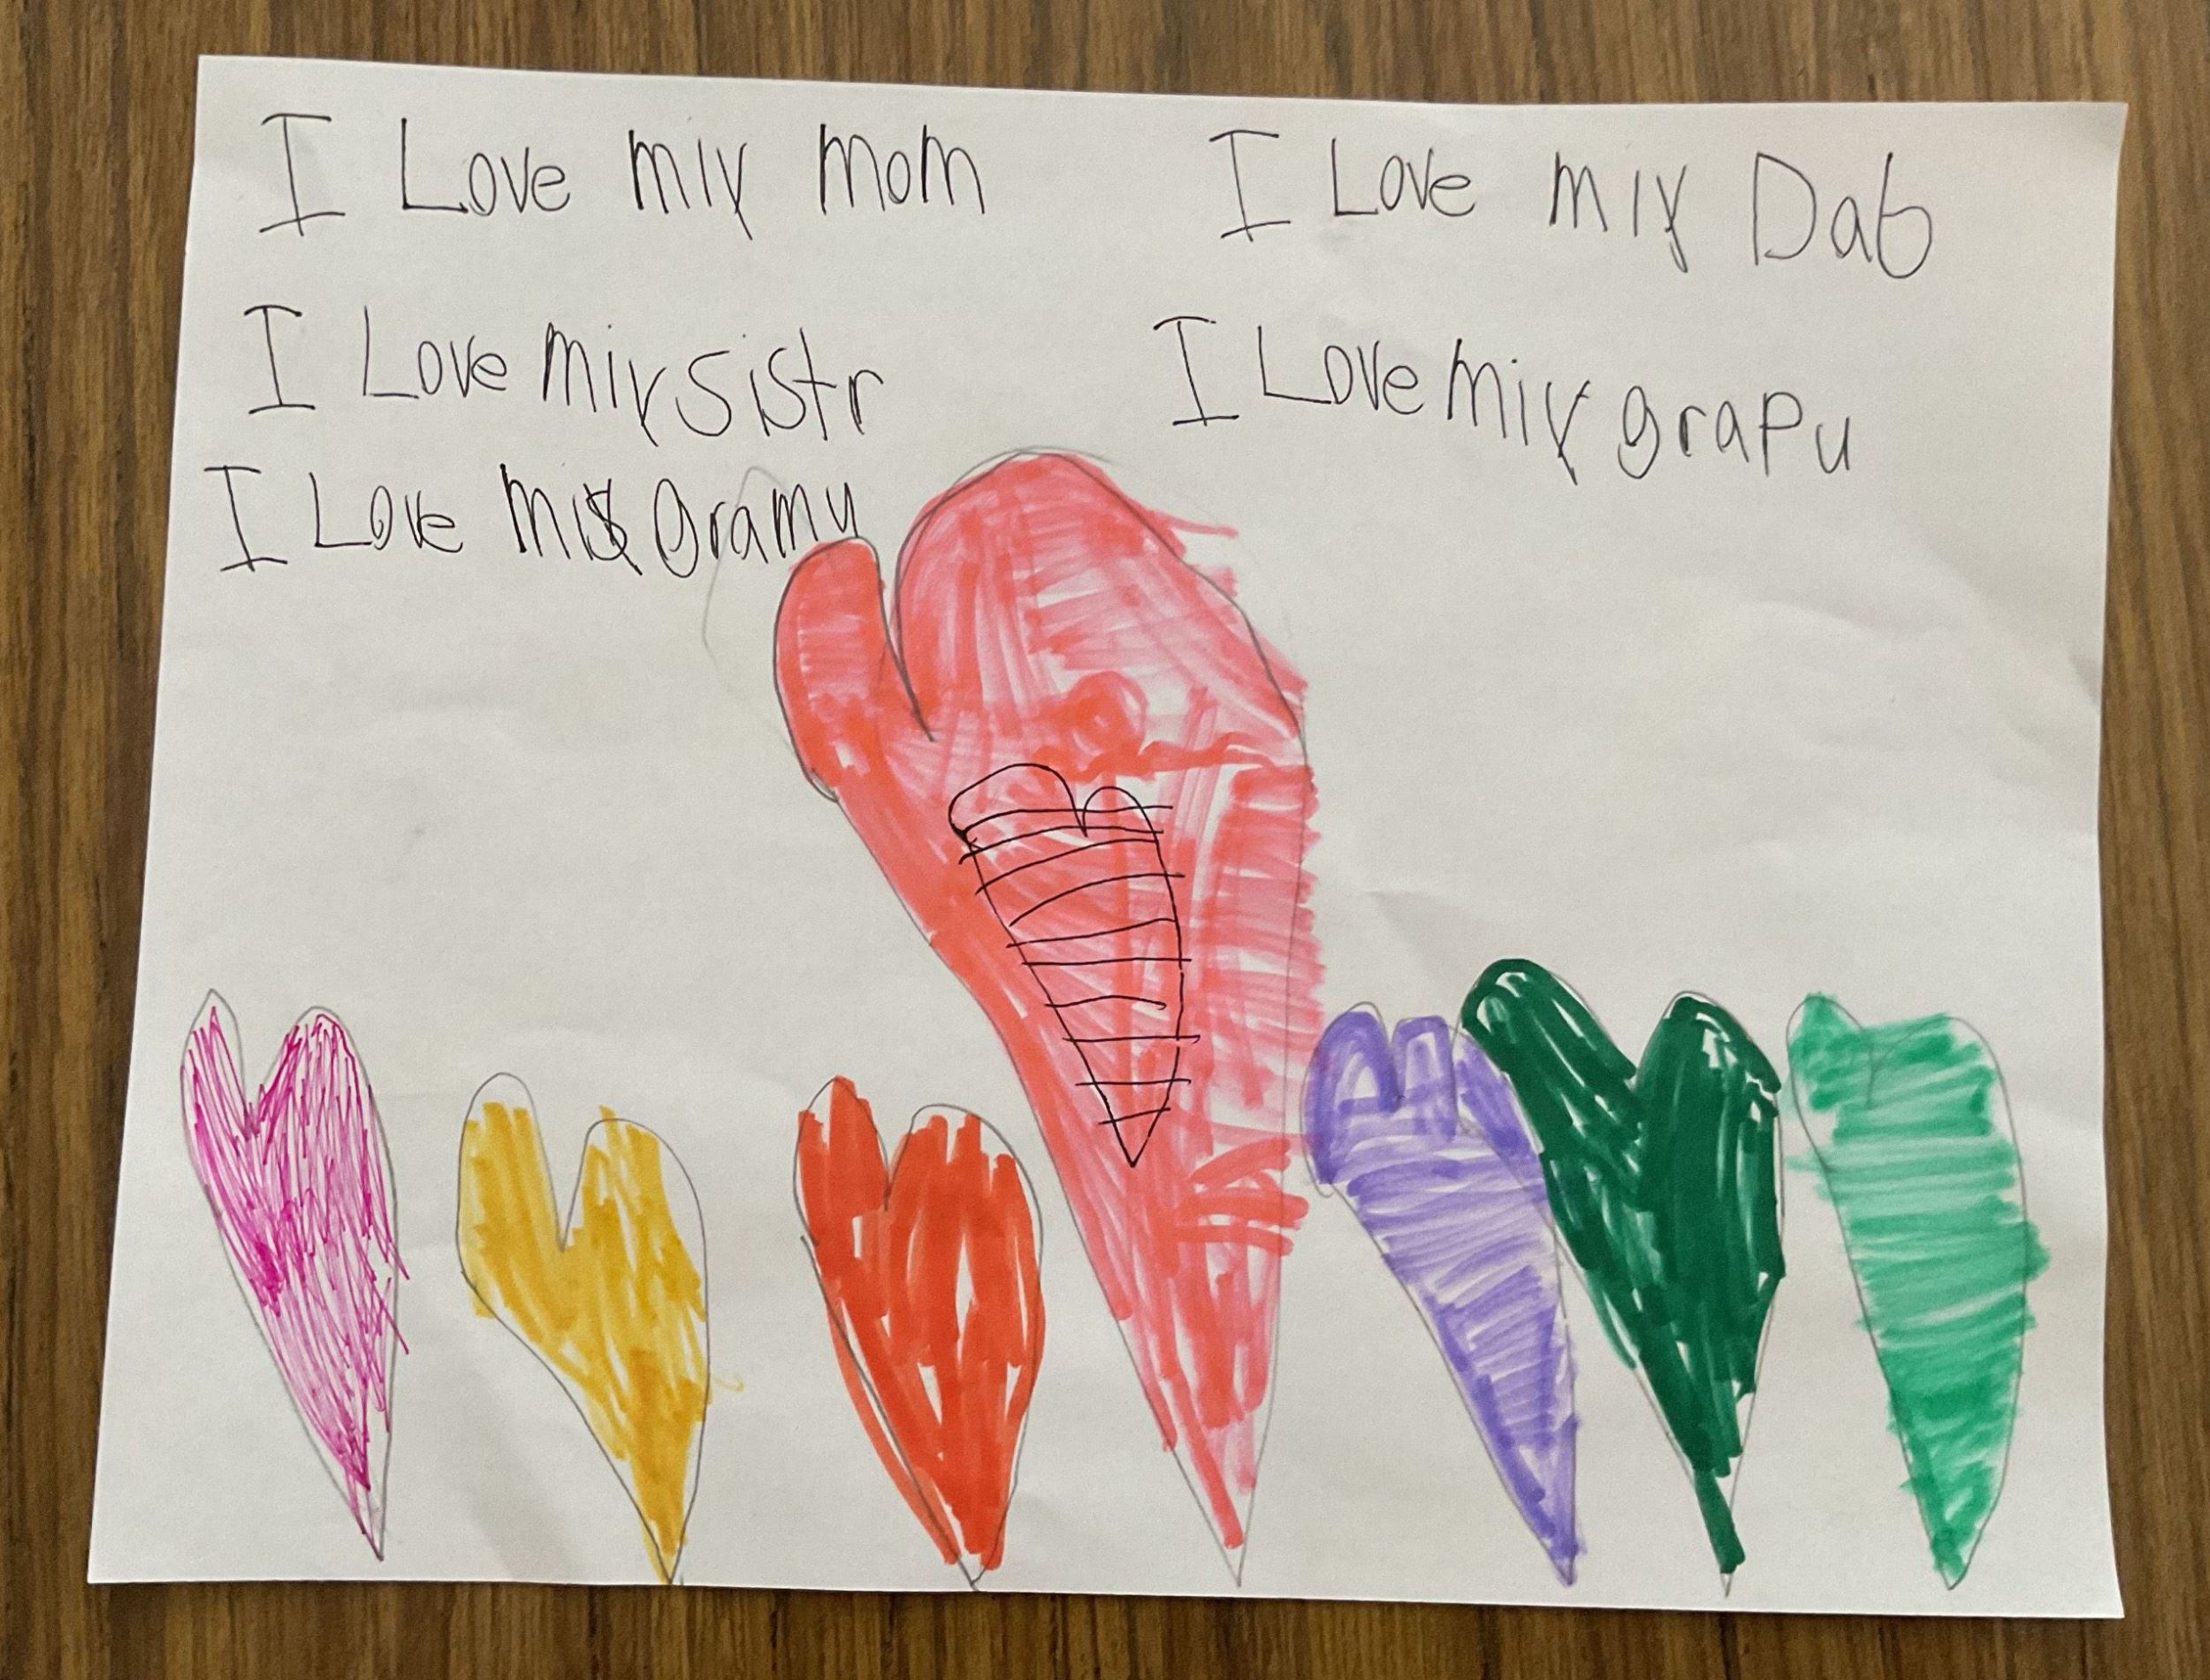 I Love miy mom
I Love miy Dab
I Love miy sistr
I Love miy grapu
I Love miy gramu